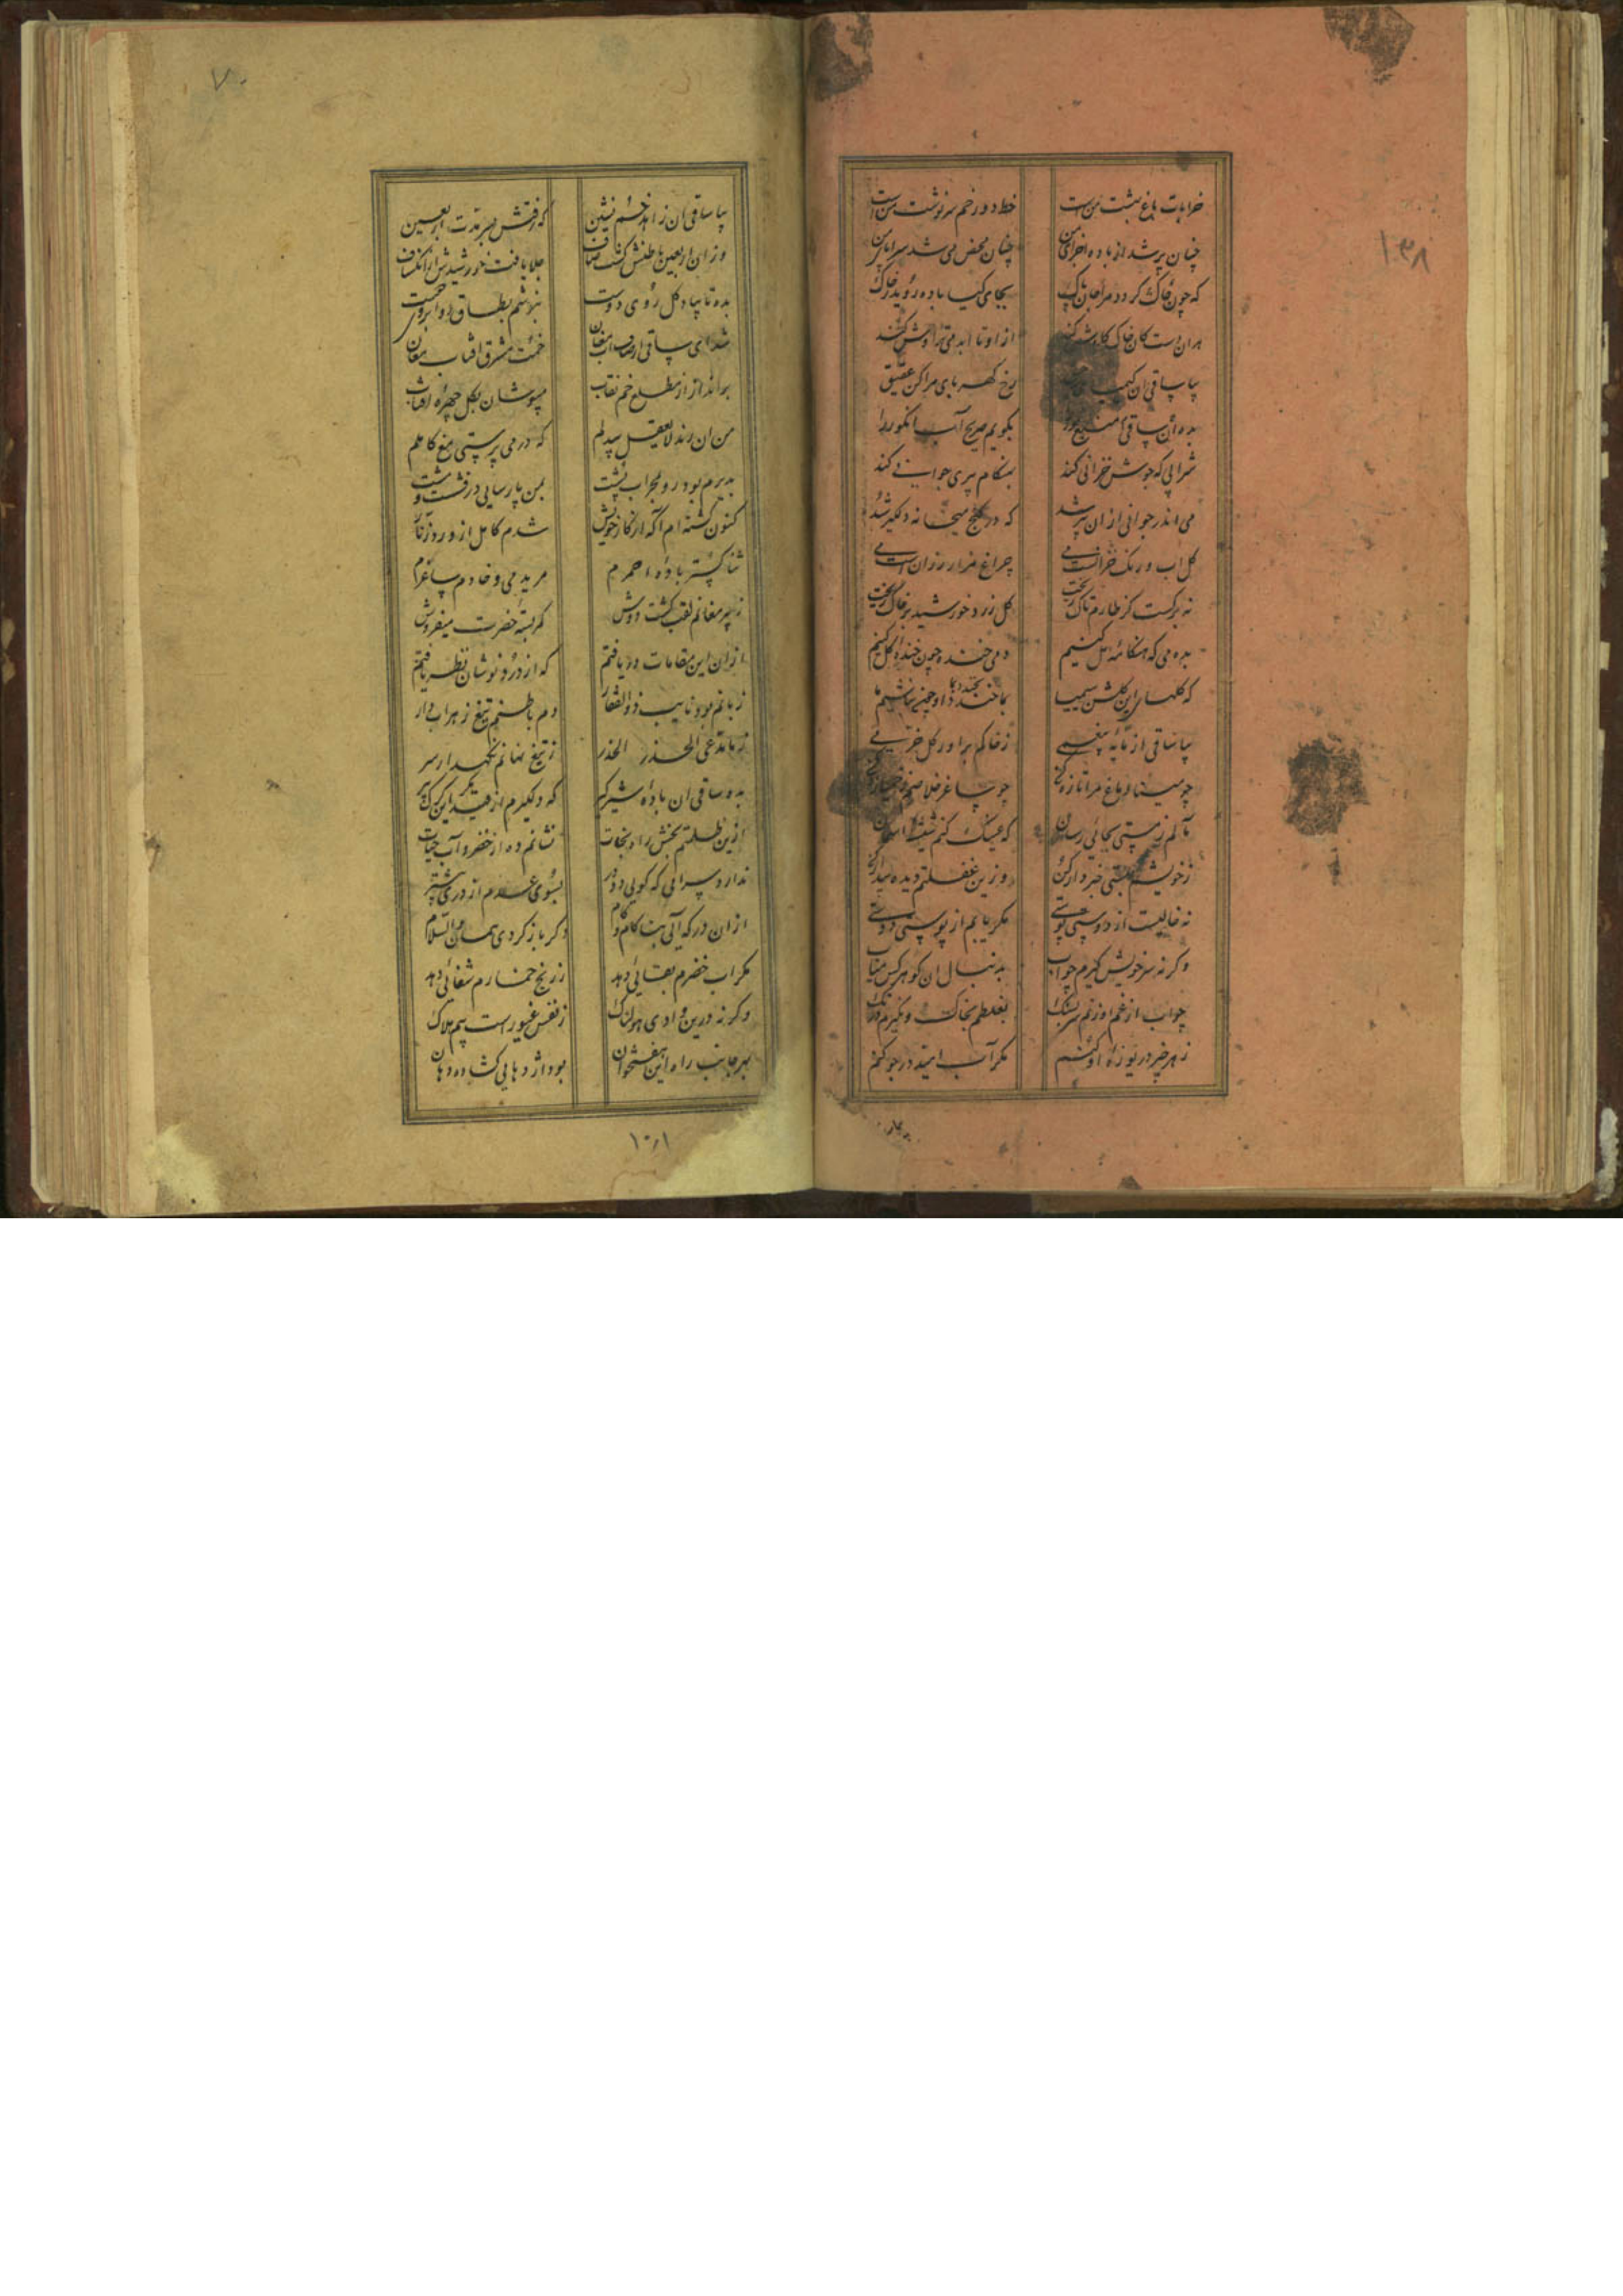 ۱۳۸
خرابات باغ بهشت منست خط دور خم سرنوشت منست
چنان پر شد از باده اجزای من چنان محض می شد سراپای من
که چون خاک گردد مرا جان پاک بجای گیا باده روید ز خاک
هران دست کان خاک از او تا ابد
بیا ساقی آن کیمیای رخ کهربای مرا کن عقیق
بده آن ساقی بگویم صریح آب انگور را
شرابی که جوشش خزانی کند بهنگام پیری جوانی کند
می اندر جوانی از ان پیر شد که در کنج میخانه دلگیر شد
گل آب و رنگ خزانست می چراغ مزار رزان است می
نه برگست کز طارم تاک ریخت گل زرد خورشید بر خاک ریخت
بده می که هنگامه مل کنیم دمی خنده چون خنده گل کنیم
که گلهای این گلشن سیمیا بما خندد او چون نباشیم ما
بیا ساقی از مایه بیغمی ز خاکم برآور گل خرمی
چو مینا دماغ مرا تازه کن چو ساغر خلاصم ز خمیازه کن
مآلم ز مستی بجائی رسان که عینک کنم شیشه آسمان
ز خویشم بمستی خبردار کن وزین غفلتم دیده بیدار کن
نه خالیست از دوستی پوستی مگر یابم از پوستی دوستی
وگرنه سر خویش گیرم چو آب بدنبال آن گوهر
چو آب از غم او زنم سر بسنگ بغلطم بخاک و بگیرم
ز هر خیر دریوزه او کنم مگر آب امید در جو کنم
۷۰
بیا ساقی آن زاهد خم نشین که رفتش بسر مدت اربعین
وزان اربعین باطنش گشت صاف جلا یافت خورشیدش از انکساف
بده تا بیاد گل روی دوست
شدای ساقی خمت مشرق آفتاب مغان
برانداز از مطلع خم نقاب مپوشان بگل چهره آفتاب
من آن رند لایعقل بیدلم که در می پرستی مغ کاملم
بدیرم بود رو بمحراب پشت بمن پارسایی درفشست و مشت
کنون گشته ام آگه از کار خویش شدم کامل از
ثنا گستر باده احمرم مرید می و خادم ساغرم
ز پیر مغانم لقب گشت دوش کمر بسته حضرت میفروش
ازان این مقامات دریافتم که از درد نوشان نظر یافتم
زبانم بود نایب ذوالفقار دم باطنم تیغ زهراب دار
ز ما مدعی الحذر الحذر ز تیغ نهانم نگهدار سر
بده ساقی آن باده شیرگیر که دلگیرم از قید این گرگ پیر
ازین ظلمتم بخش راه نجات نشانم ده از خضر و آب حیات
ندارد سرائی که گویی دو در بسوی عدم از دری بیشتر
ازان در که آئی بنه گام گام وگر باز گردی همان والسلام
مگر آب خضرم بقائی دهد ز رنج خمارم شفائی دهد
وگرنه درین وادی هولناک ز نفس غیورست بیم هلاک
بهر جانب راه این هفتخوان بود اژدهایی گشاده دهان